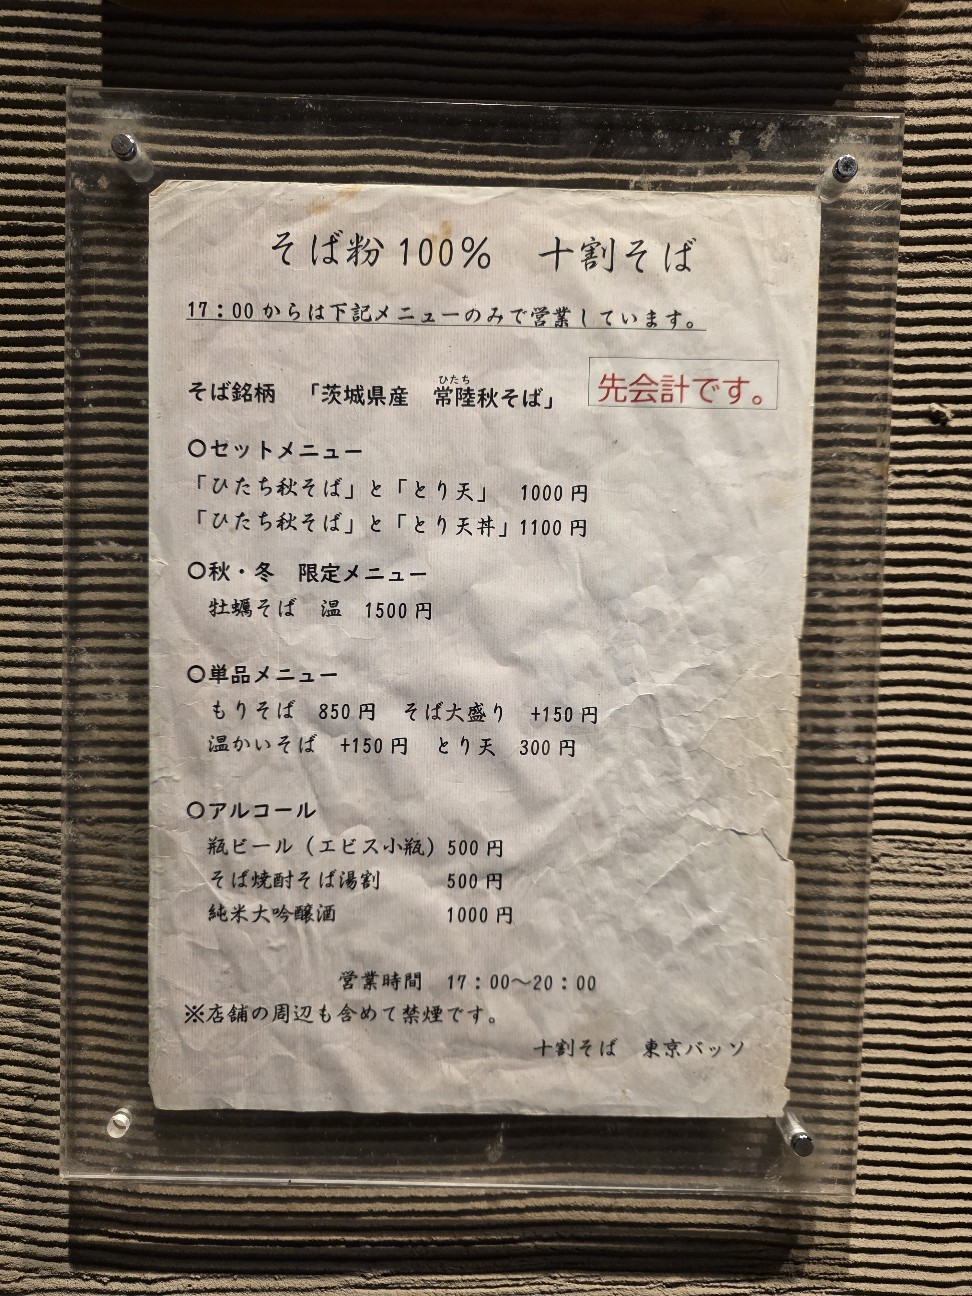 そば粉100％　十割そば
17：00からは下記メニューのみで営業しています。
そば銘柄　「茨城県産　常陸秋そば」
ひたち
先会計です。
〇セットメニュー
「ひたち秋そば」と「とり天」　1000円
「ひたち秋そば」と「とり天丼」1100円
〇秋・冬　限定メニュー
牡蠣そば　温　1500円
〇単品メニュー
もりそば　850円　そば大盛り　+150円
温かいそば　+150円　とり天　300円
〇アルコール
瓶ビール（エビス小瓶）500円
そば焼酎そば湯割　500円
純米大吟醸酒　1000円
営業時間　17：00～20：00
※店舗の周辺も含めて禁煙です。
十割そば　東京バッソ